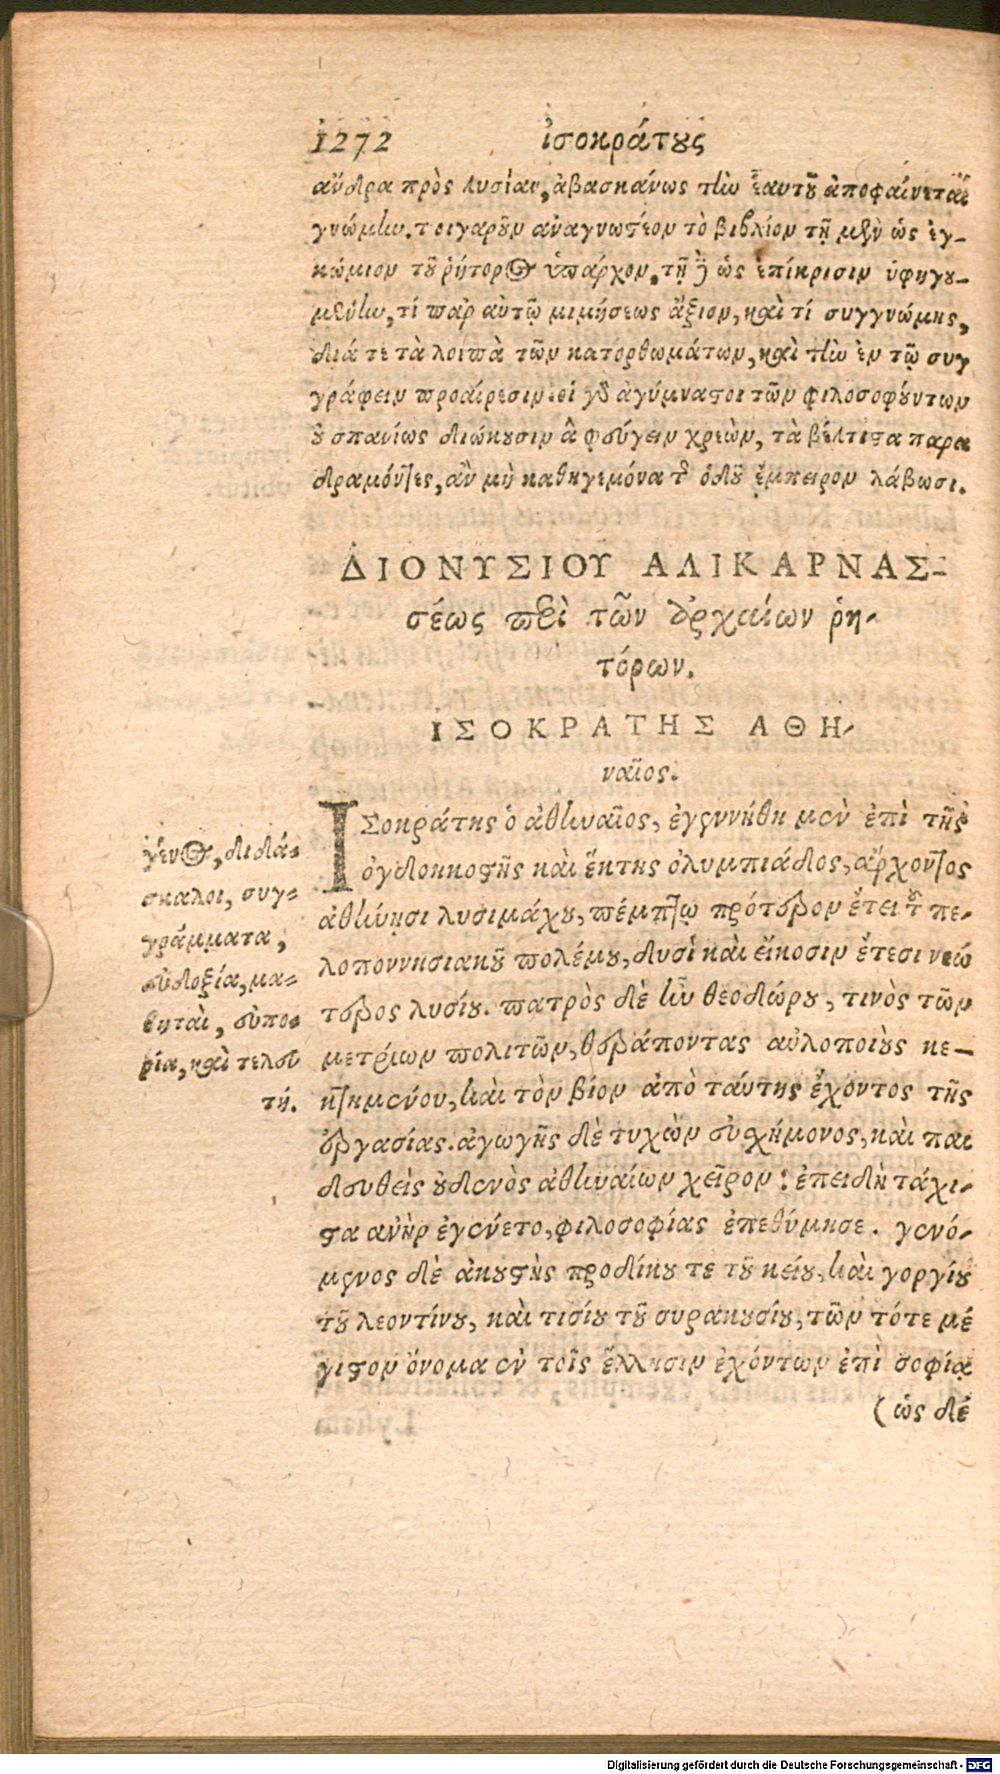 1272 ἰσοκράτους
ἄνδρα πρὸς λυσίαν, ἀβασκάνως τὴν ἑαυτοῦ ἀποφαίνεται
γνώμην. τοιγαροῦν ἀναγνωστέον τὸ βιβλίον τῇ μὲν ὡς ἐγ-
κώμιον τοῦ ῥήτορος ὑπάρχον, τῇ δὲ ὡς ἐπίκρισιν ὑφηγου-
μένην, τί παρ αὐτῷ μιμήσεως ἄξιον, καὶ τί συγγνώμης,
διά τε τὰ λοιπὰ τῶν κατορθωμάτων, καὶ τὴν ἐν τῷ συγ
γράφειν προαίρεσιν. οἱ γὰρ ἀγύμναστοι τῶν φιλοσοφούντων
οὐ σπανίως διώκουσιν ἃ φεύγειν χρεὼν, τὰ βέλτιστα παρα
δραμόντες, ἂν μὴ καθηγεμόνα τῆς ὁδοῦ ἔμπειρον λάβωσι.
ΔΙΟΝΥΣΙΟΥ ΑΛΙΚΑΡΝΑΣ-
σέως περὶ τῶν ἀρχαίων ῥη-
τόρων.
ΙΣΟΚΡΑΤΗΣ ΑΘΗ-
ναῖος.
ΙΣοκράτης ὁ ἀθηναῖος, ἐγεννήθη μὲν ἐπὶ τῆς
ὀγδοηκοστῆς καὶ ἕκτης ὀλυμπιάδος, ἄρχοντος
ἀθήνησι λυσιμάχου, πέμπτῳ πρότερον ἔτει τῆς πε-
λοποννησιακοῦ πολέμου, δυσὶ καὶ εἴκοσιν ἔτεσι νεώ
τερος λυσίου. πατρὸς δὲ ἦν θεοδώρου, τινὸς τῶν
μετρίων πολιτῶν, θεράποντας αὐλοποιοὺς κε-
κτημένου, καὶ τὸν βίον ἀπὸ ταύτης ἔχοντος τῆς
ἐργασίας. ἀγωγῆς δὲ τυχὼν εὐσχήμονος, καὶ παι
δευθεὶς οὐδενὸς ἀθηναίων χεῖρον: ἐπειδὴ τάχι-
στα ἀνὴρ ἐγένετο, φιλοσοφίας ἐπεθύμησε. γενό-
μενος δὲ ἀκουστὴς προδίκου τε τοῦ κείου, καὶ γοργίου
τοῦ λεοντίνου, καὶ τισίου τοῦ συρακουσίου, τῶν τότε μέ
γιστον ὄνομα ἐν τοῖς ἕλλησιν ἐχόντων ἐπὶ σοφίᾳ
(ὡς δέ
γένος, διδά-
σκαλοι, συγ-
γράμματα,
εὐδοξία, μα-
θηταὶ, εὐπο-
ρία, καὶ τελευ
τή.
Digitalisierung gefördert durch die Deutsche Forschungsgemeinschaft - DFG